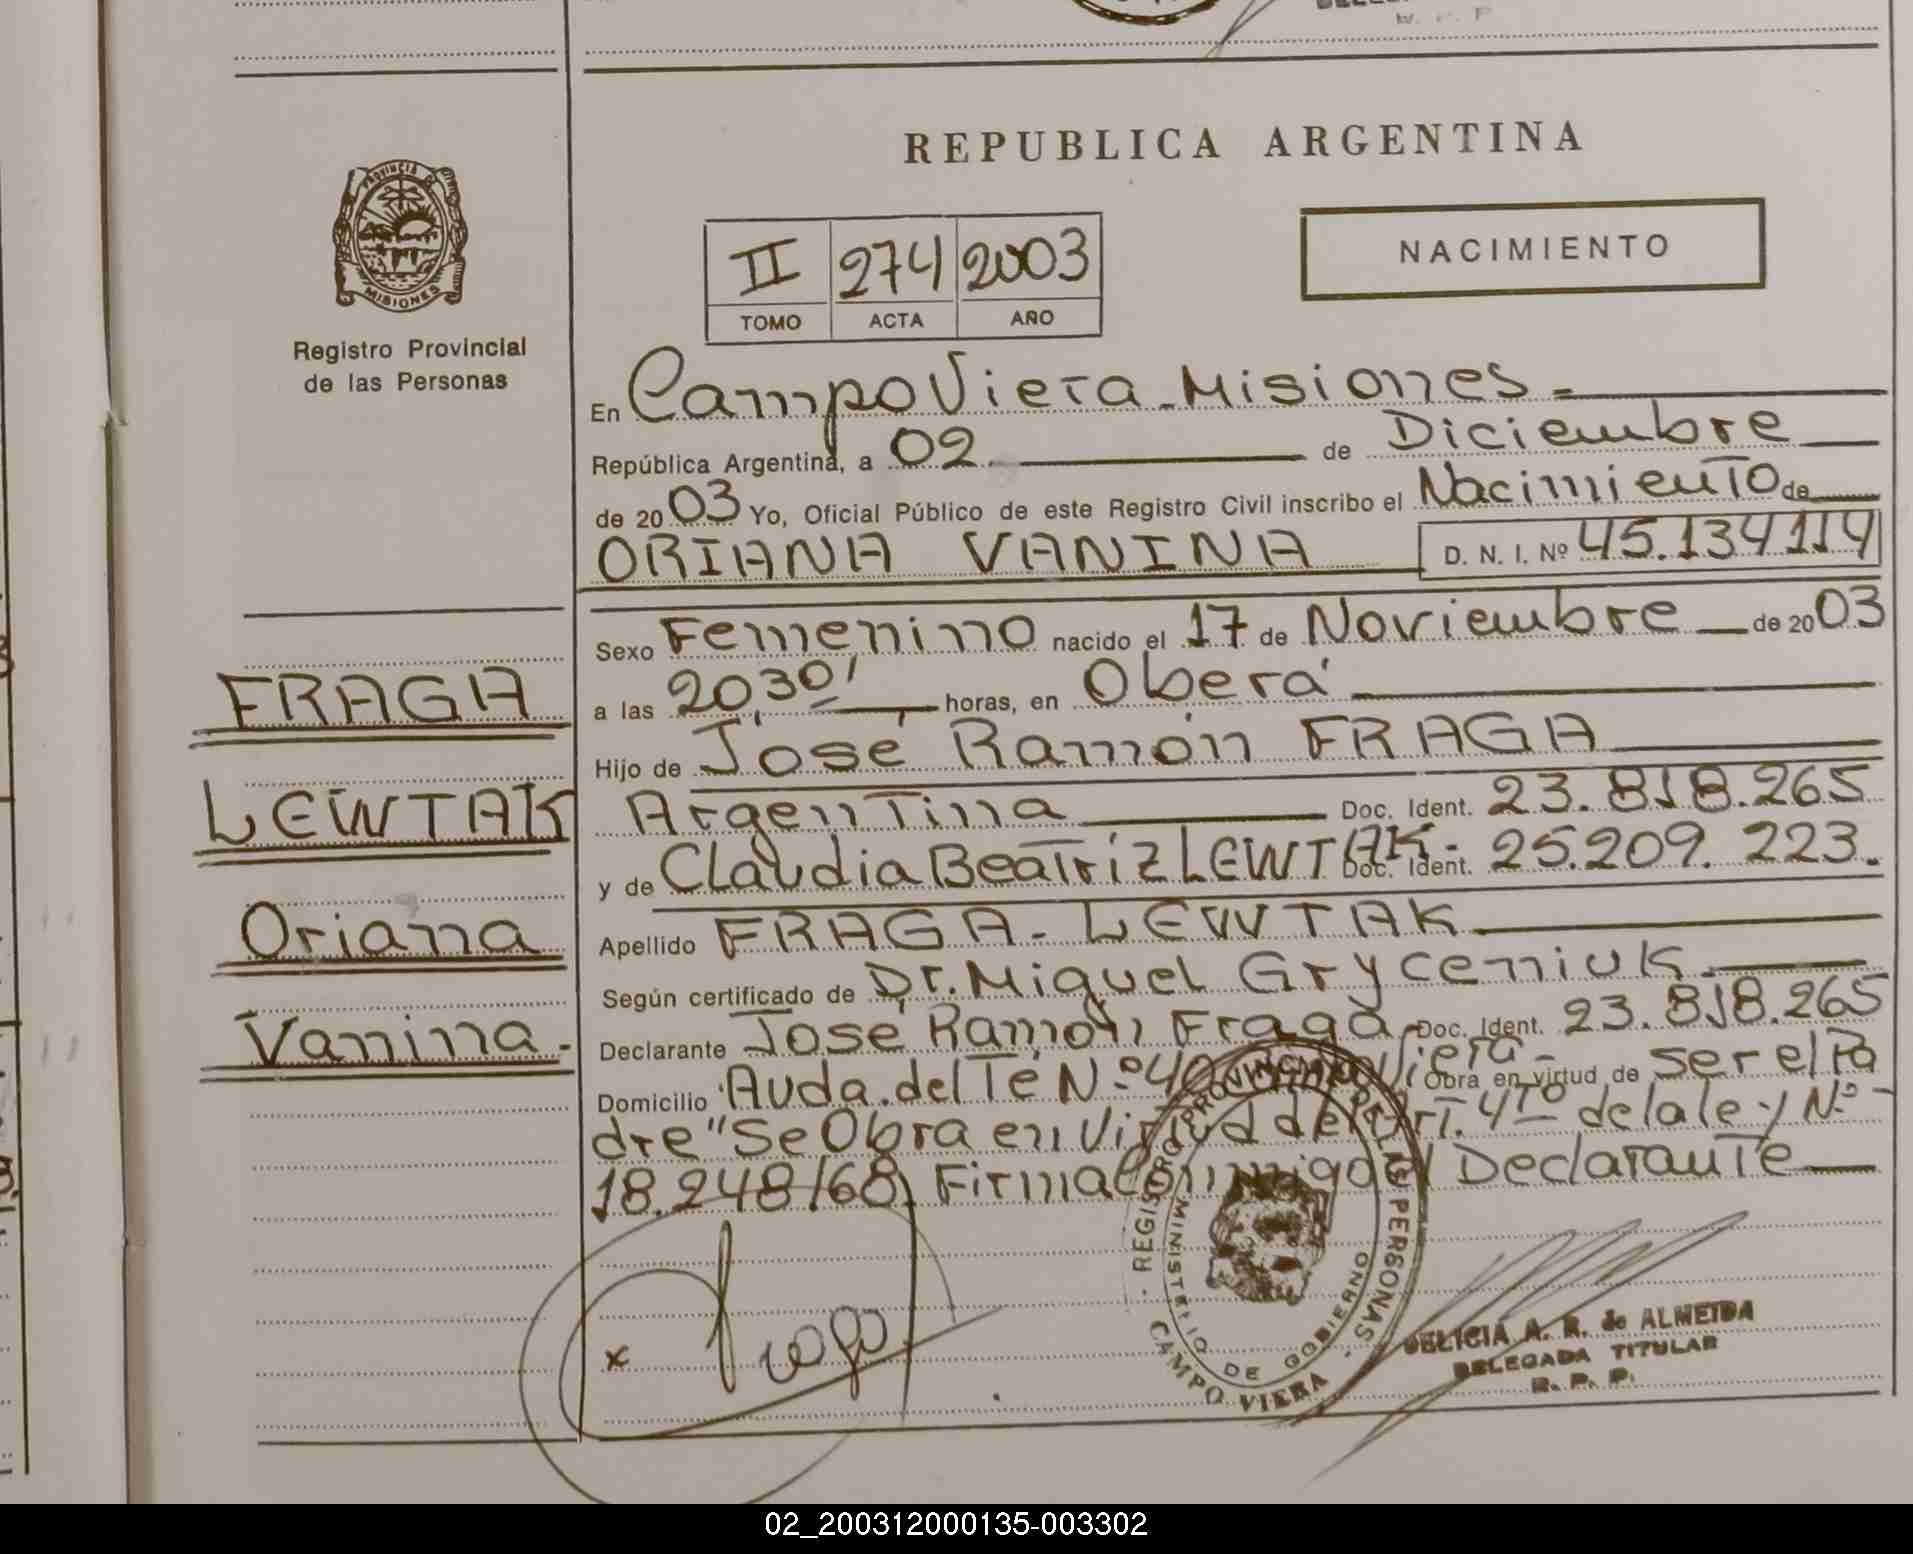 REPUBLICA ARGENTINA
PROVINCIA DE MISIONES
Registro Provincial
de las Personas
II 274 2003
TOMO ACTA AÑO
NACIMIENTO
En Campo Viera - Misiones.-
República Argentina, a 02 de Diciembre
de 2003 Yo, Oficial Público de este Registro Civil inscribo el Nacimiento de
ORIANA VANINA D. N. I. Nº 45.134.114
Sexo Femenino nacido el 17 de Noviembre de 2003
a las 20,30' horas, en Oberá
Hijo de José Ramón FRAGA
Argentina Doc. Ident. 23.818.265
y de Claudia Beatriz LEWTAK.- Doc. Ident. 25.209.223.
Apellido FRAGA - LEWTAK
Según certificado de Dr. Miguel Gryceniuk.
Declarante José Ramón Fraga Doc. Ident. 23.818.265
Domicilio Avda. del Té Nº 40 Viera- Obra en virtud de ser el Pa
dre "Se Obra en Virtud del Art. 4to de la ley Nº-
18.248/68, Firma Conmigo el Declarante
FRAGA
LEWTAK
Oriana
Vanina.-
x Fraga
REGISTRO PROVINCIAL DE LAS PERSONAS
MINISTERIO DE GOBIERNO
CAMPO VIERA
DELICIA A. R. de ALMEIDA
DELEGADA TITULAR
R. P. P.
02_200312000135-003302